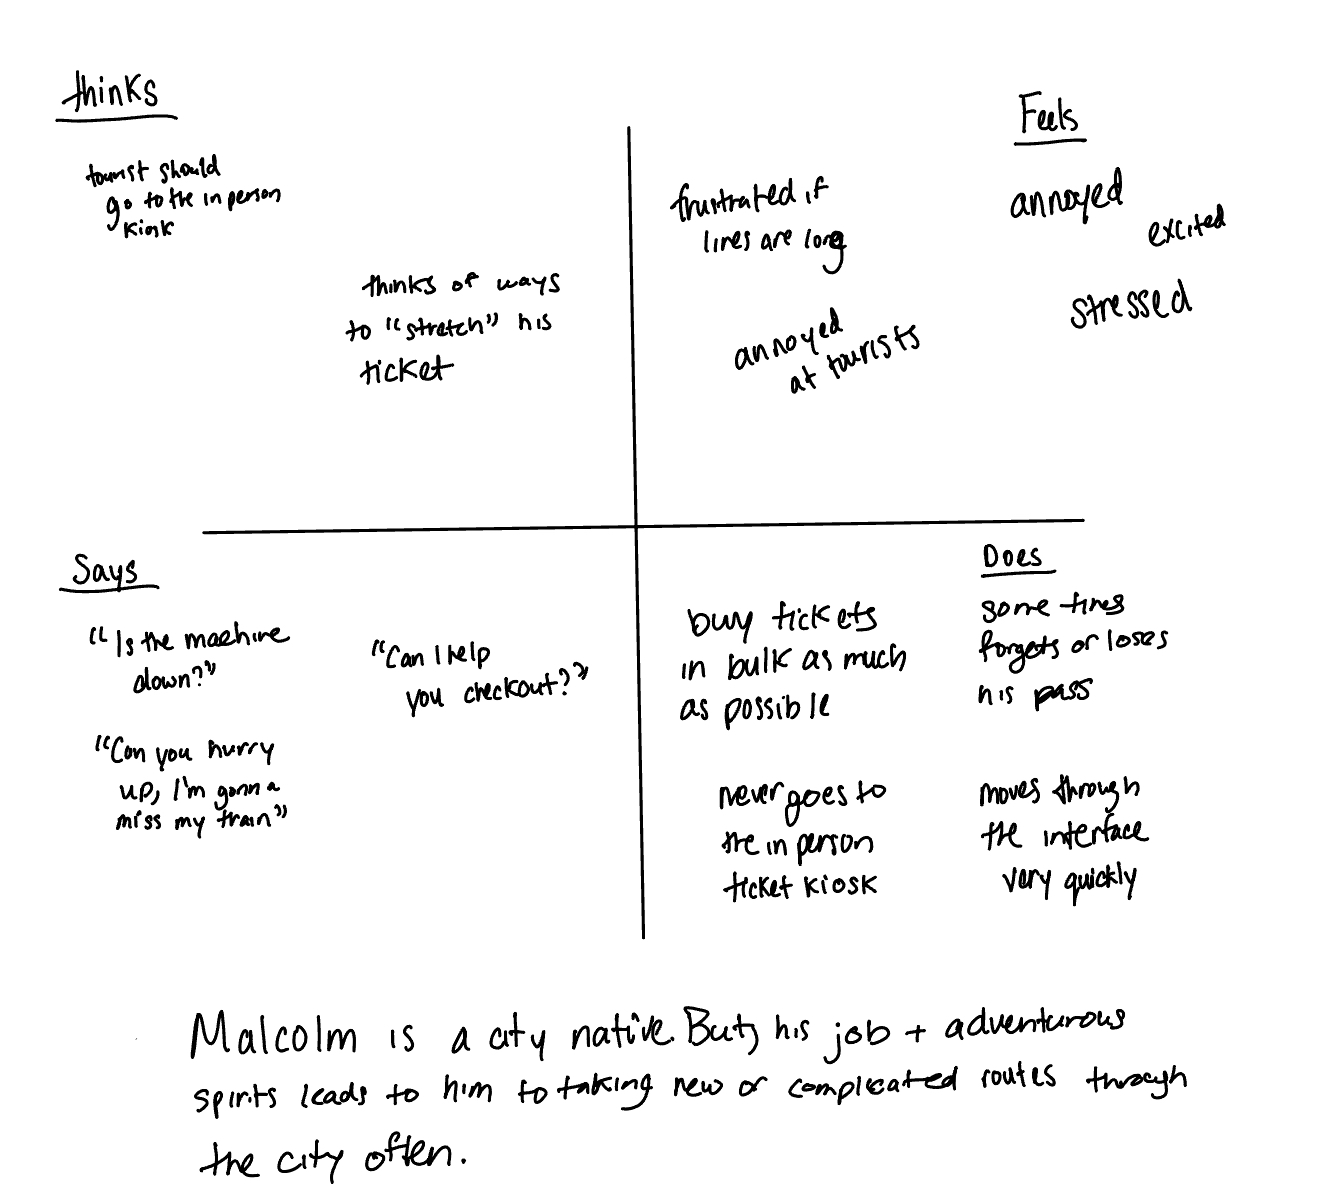 thinks
tourist should
go to the in person
kiosk
thinks of ways
to "stretch" his
ticket
Feels
frustrated if
lines are long
annoyed
at tourists
annoyed
excited
stressed
Says
"Is the machine
down?"
"Can I help
you checkout?"
"Can you hurry
up, I'm gonna
miss my train"
Does
buy tickets
in bulk as much
as possible
some times
forgets or loses
his pass
never goes to
the in person
ticket kiosk
moves through
the interface
very quickly
Malcolm is a city native. But, his job + adventurous
spirits leads to him to taking new or complicated routes through
the city often.